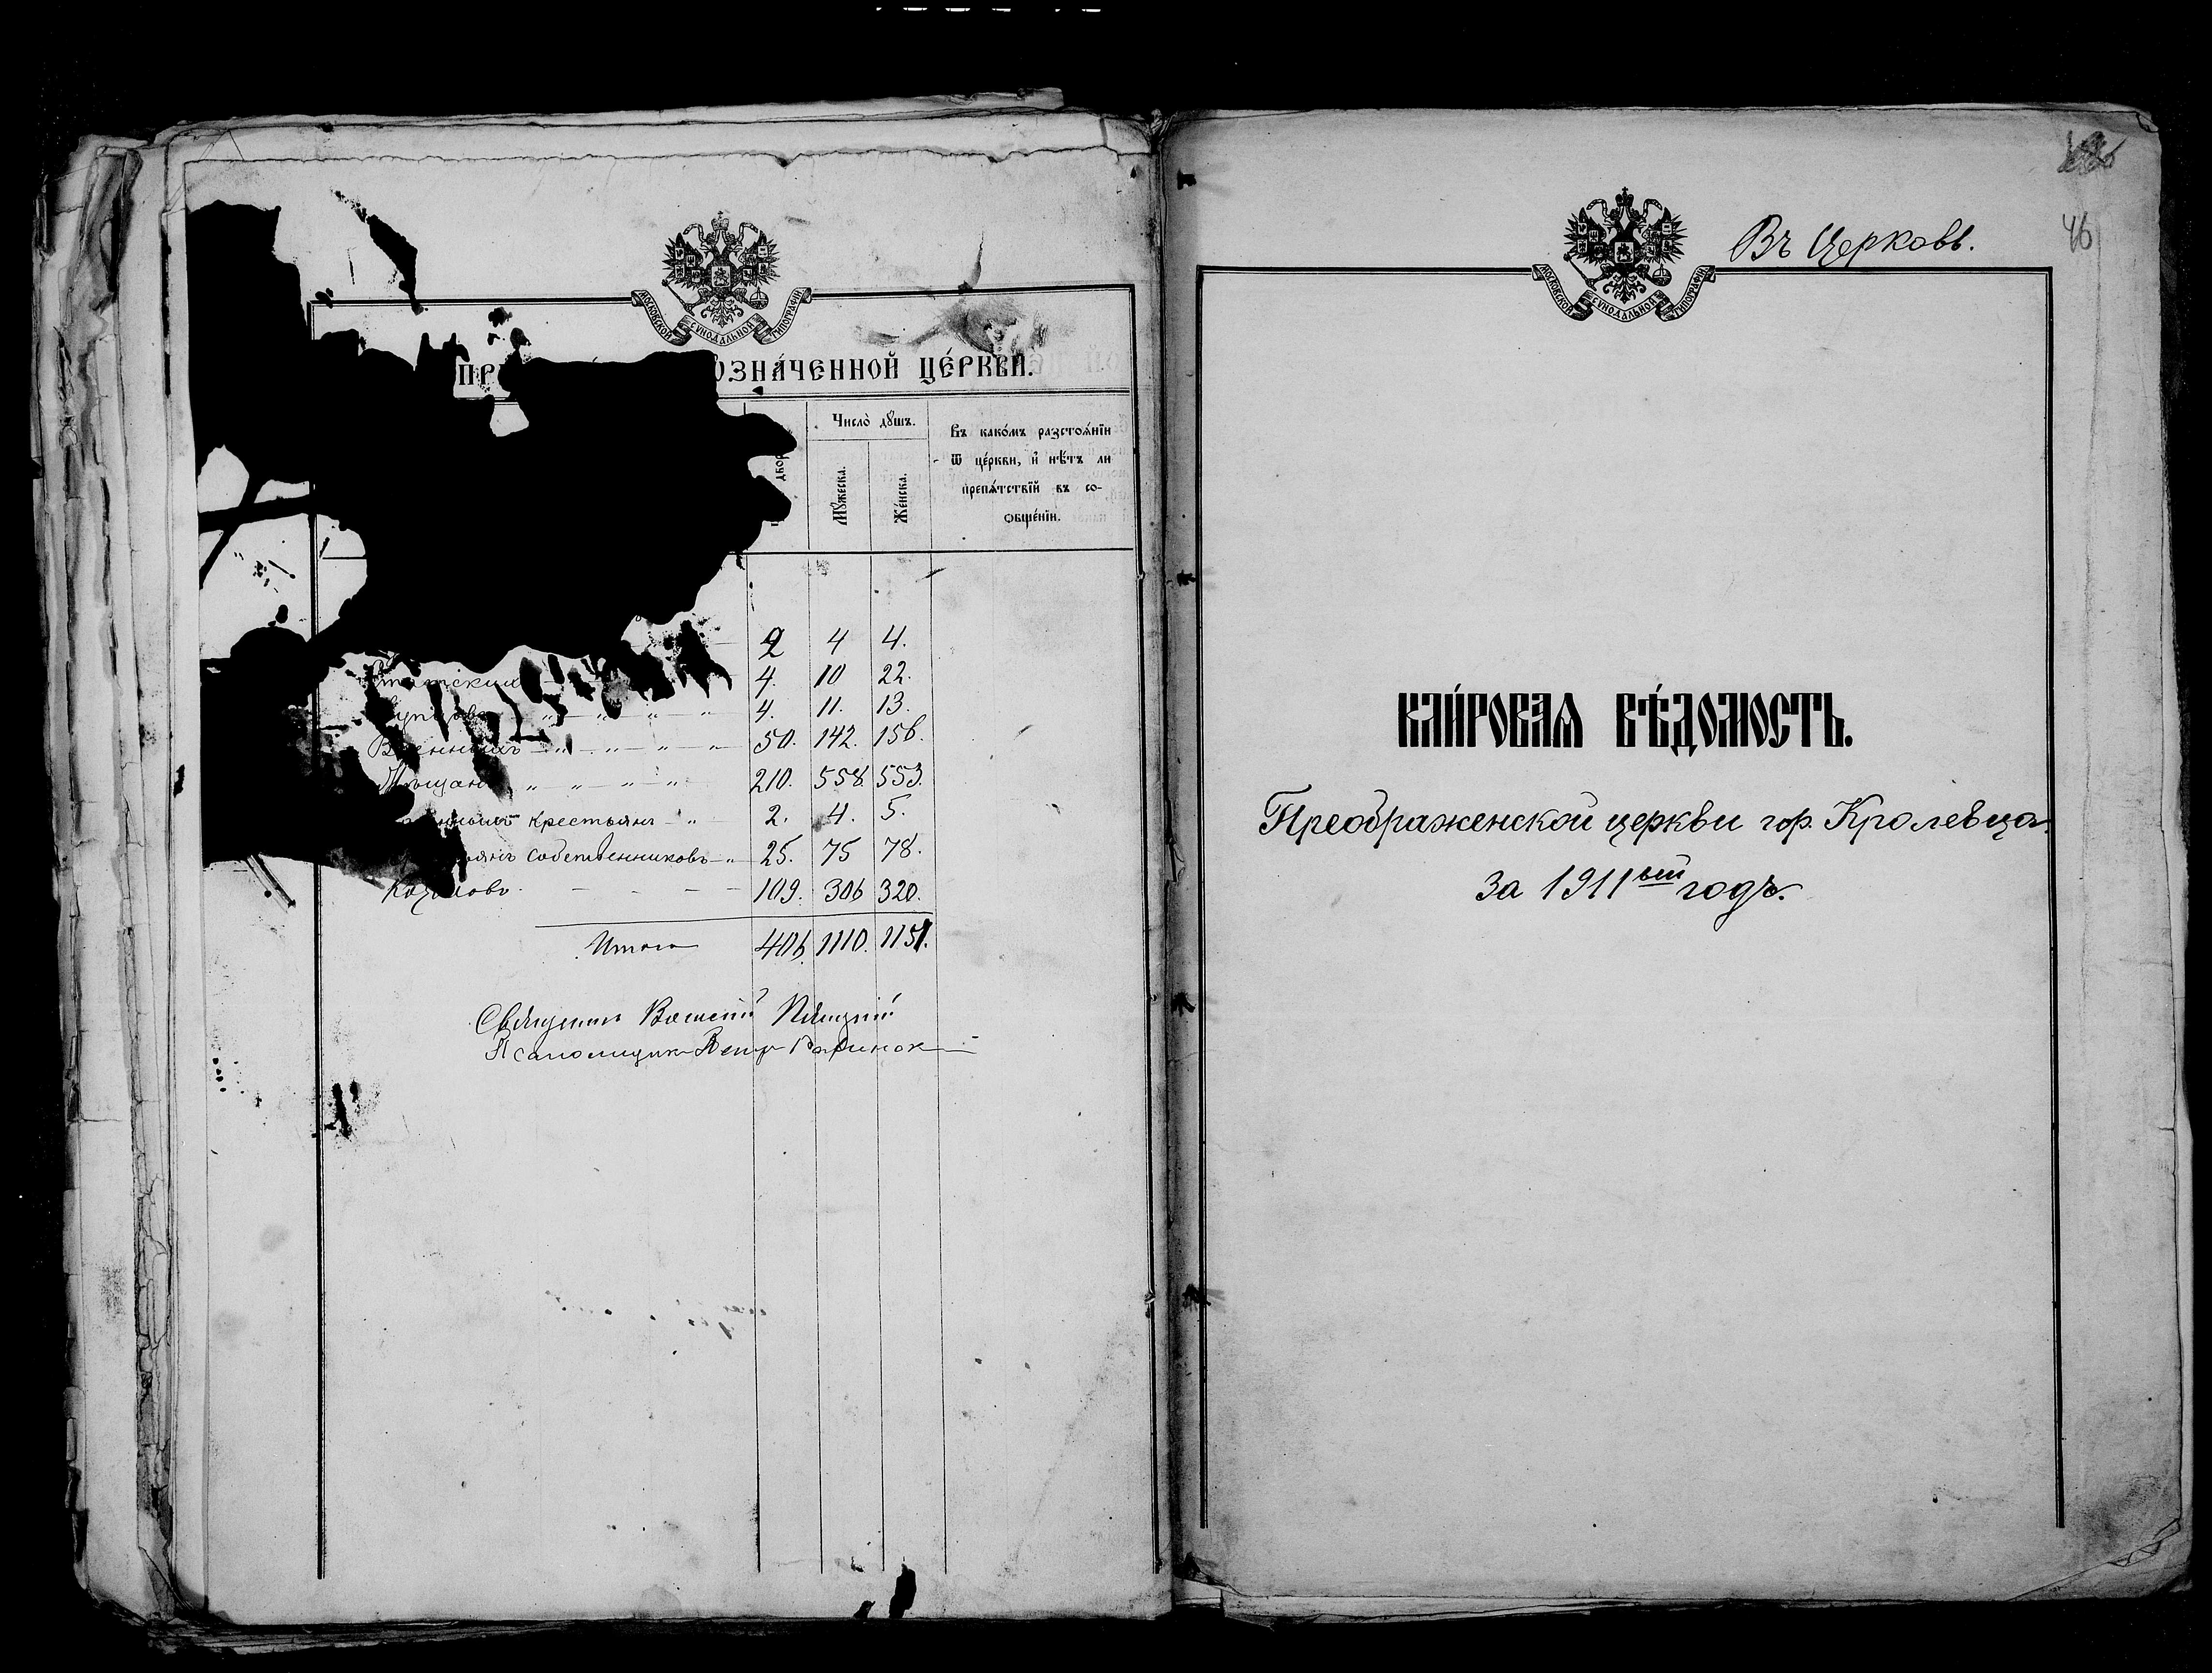 МОСКОВСКОЙ СѴНОДАЛЬНОЙ ТИПОГРАФІИ
ОЗНА́ЧЕННОЙ ЦЕ́РКВИ.
Число̀ дꙋшъ.
Мꙋ́жеска.
Же́нска.
Въ како́мъ разстоѧ́нїи
ѿ це́ркви, и҆ нѣ́тъ ли
препѧ́тствїй въ со-
ѻбще́нїи.
2 4 4.
4. 10 22.
4. 11. 13.
Военныхъ " " " " 50. 142. 156.
Мѣщанъ " " " " 210. 558. 553.
крестьянъ " 2. 4. 5.
собственниковъ " 25. 75 78.
Козаковъ 109. 306 320.
Итого 406. 1110. 1151.
Священникъ Василій
Псаломщикъ Петръ
Въ Церковь.
46
МОСКОВСКОЙ СѴНОДАЛЬНОЙ ТИПОГРАФІИ
КЛИ́РОВАЯ ВѢ́ДОМОСТЬ.
Преображенской церкви гор. Кролевца
за 1911ый годъ.